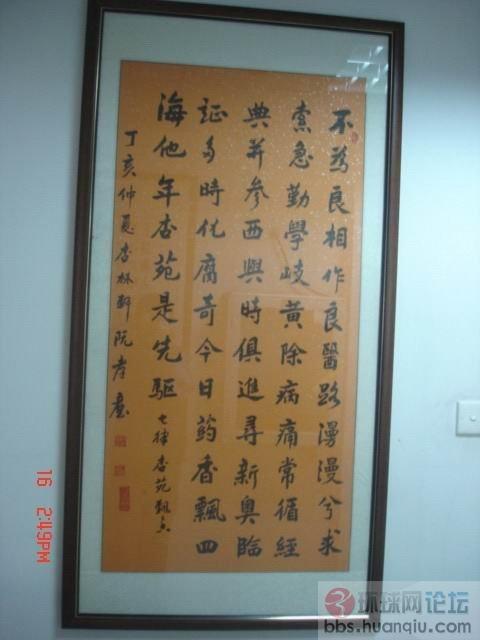 不為良相作良醫路漫漫兮求
索急勤學歧黄除病痛常循經
典并參西與時俱進尋新奥臨
証多時化腐奇今日葯香飄四
海他年杏苑是先驅 七律杏苑
丁亥仲夏杏林軒阮
16 2:49PM
环球网论坛
bbs.huanqiu.com